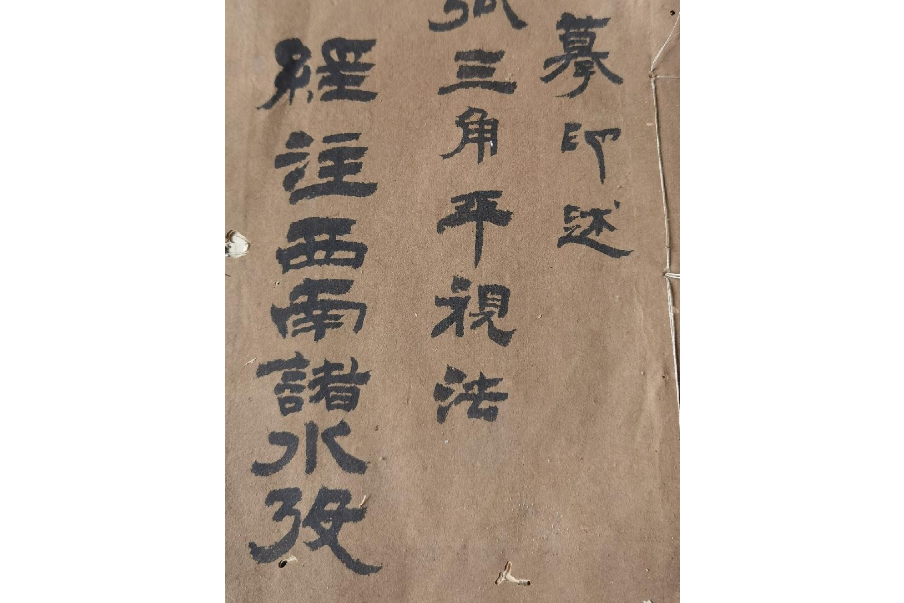 摹印述
弧三角平視法
經注西南諸水攷